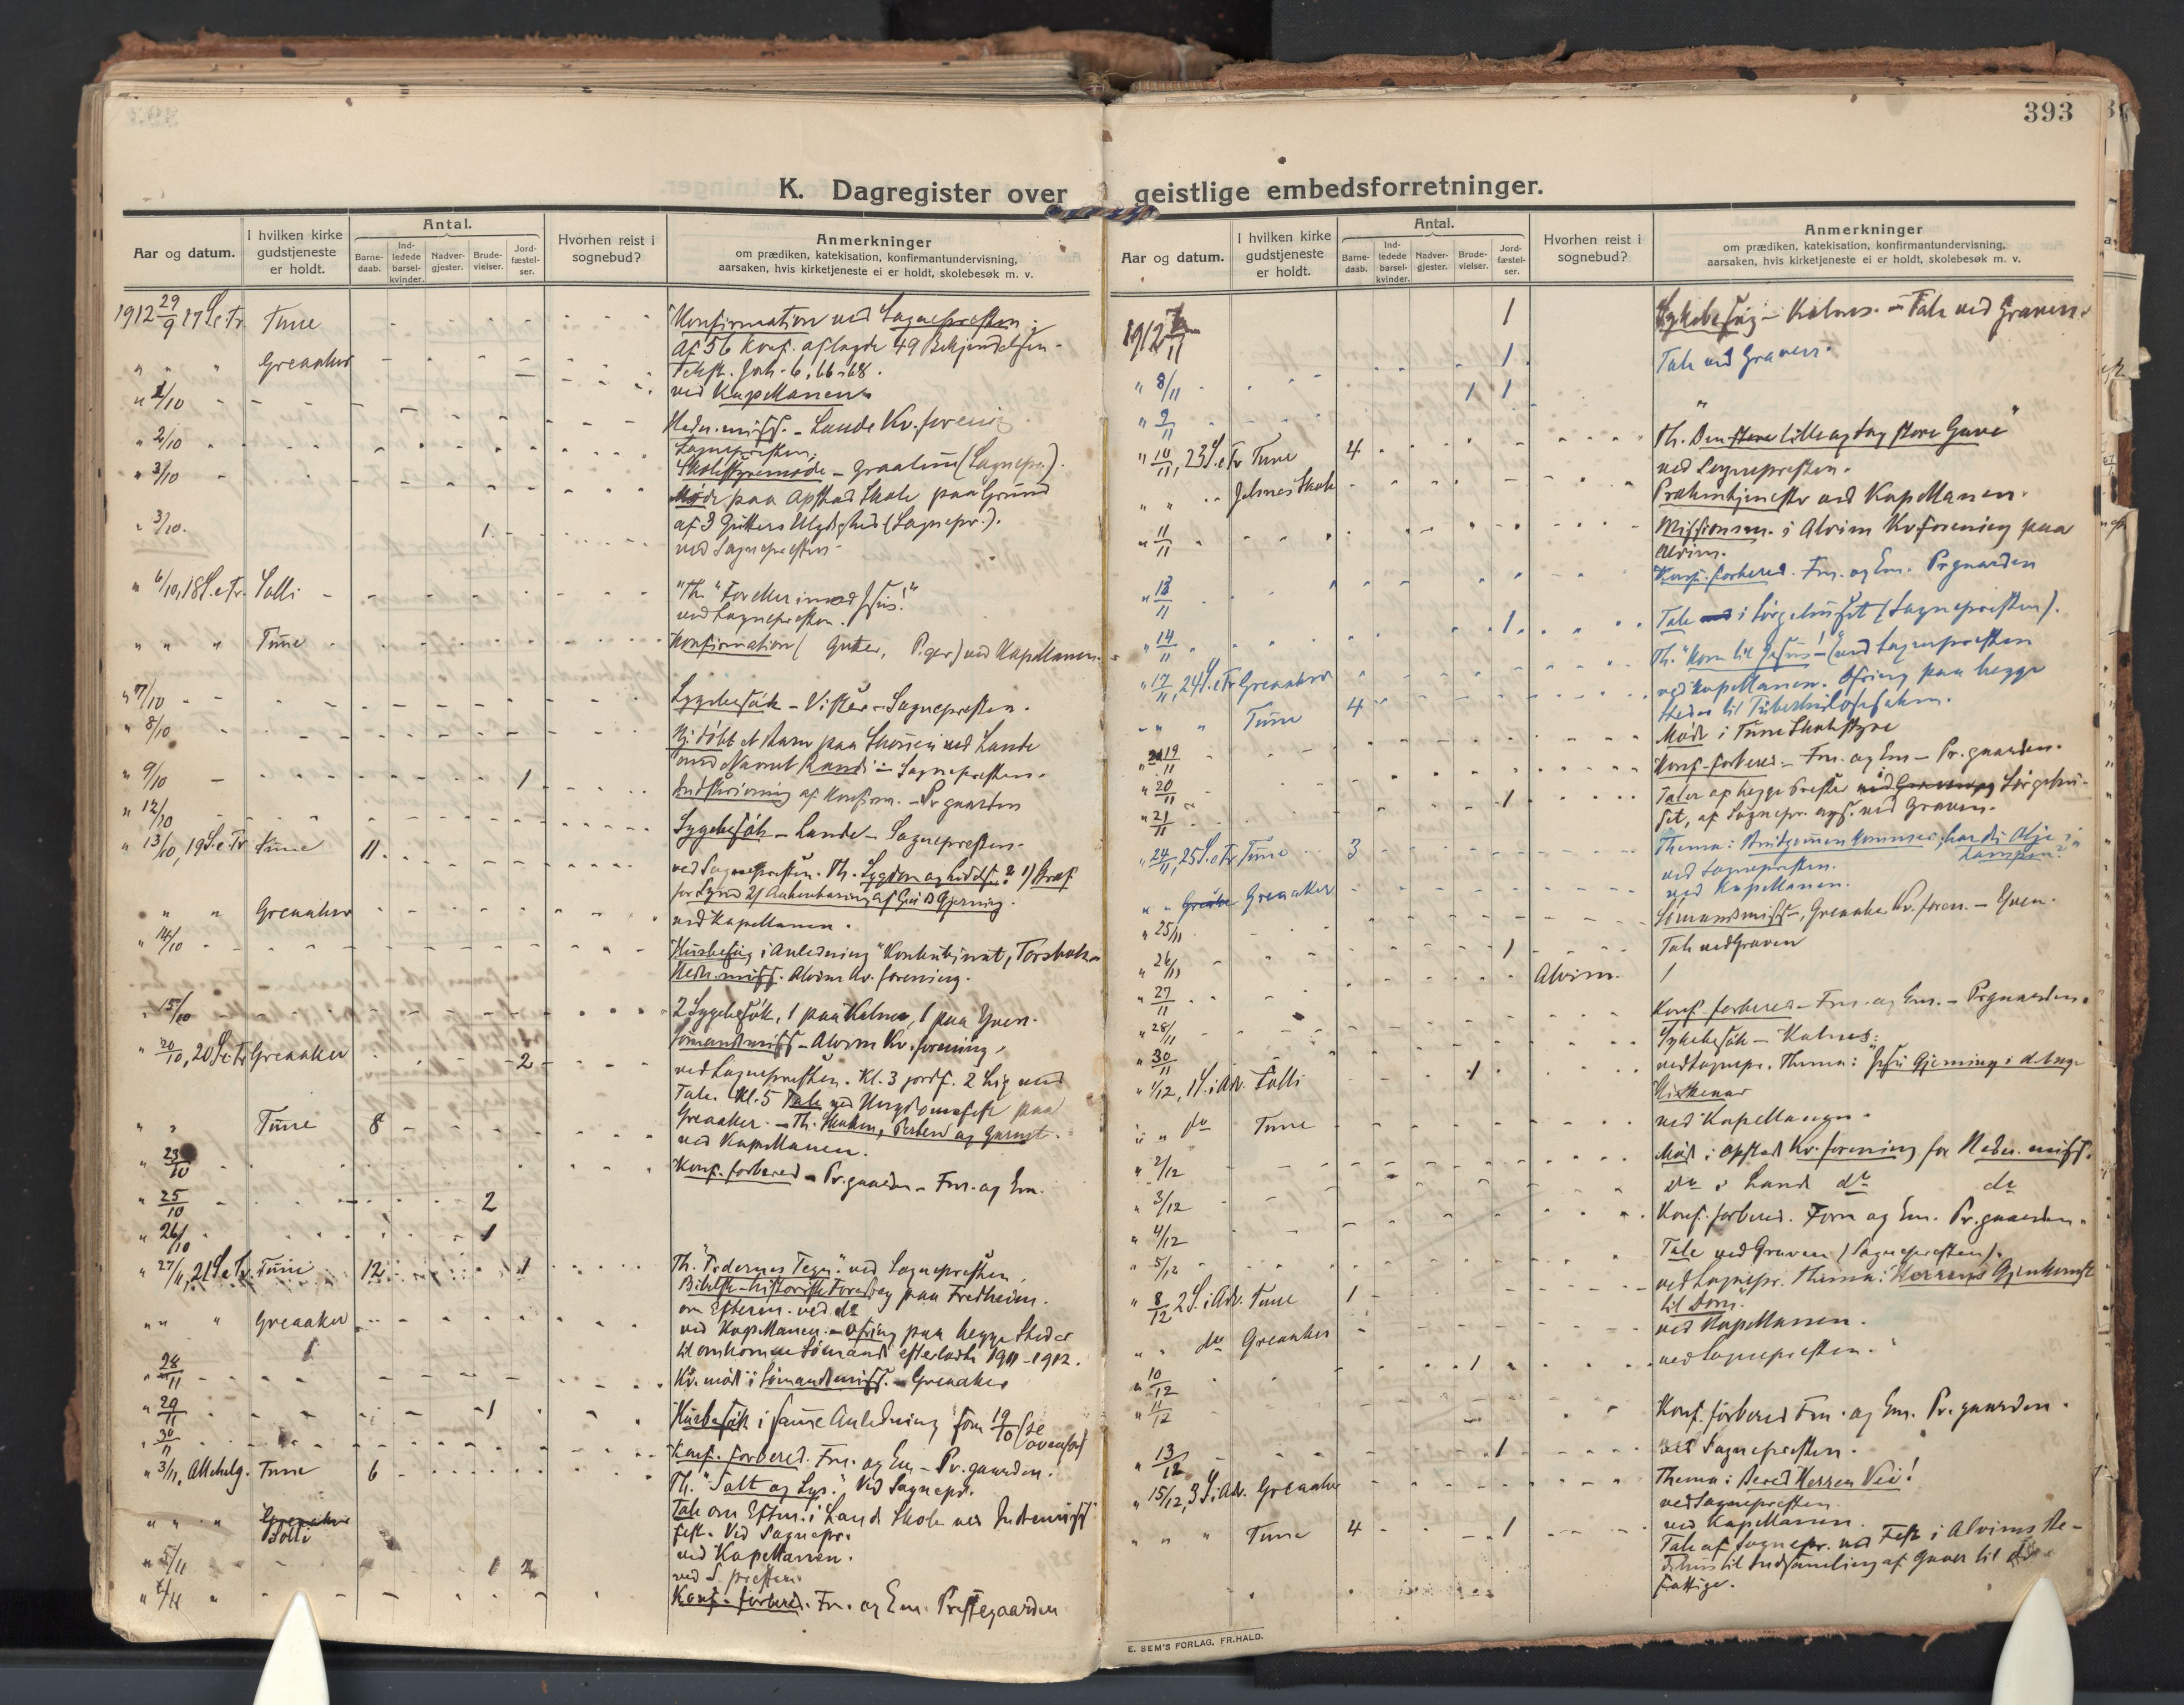 393
K. Dagregister over geistlige embedsforretninger.
Aar og datum.
I hvilken kirke gudstjeneste er holdt.
Antal.
Barne-daab.
Ind-ledede barsel-kvinder.
Nadver-gjester.
Brude-vielser.
Jord-fæstel-ser.
Hvorhen reist i sognebud?
Anmerkninger
om prædiken, katekisation, konfirmantundervisning,
aarsaken, hvis kirketjeneste ei er holdt, skolebesøk m. v.
1912 29/9 17 S.e.Tr. Tune Konfirmation ved Sognepresten.
Af 56 Konf. aflagde 49 Bekjendelsen.
Tekst. Joh. 6, 66-68.
" " " Greaaker ved Kapellanen
" 1/10 Hedn. miss. - Lande Kv. forening
Sognepresten.
" 2/10 Skolestyremøde - Graalum (Sognepr.).
" 3/10 Møde paa Opstad Skole paa Grund
af 3 Gutters (Sognepr.).
" 3/10. 1 ved Sognepresten
" 6/10, 18 S.e.Tr. Solli Th.
ved Sognepresten.
" " " Tune Konfirmation ( Gutter, Piger) ved Kapellanen.
" 7/10 Sygebesøk - - Sognepresten.
" 8/10 døbt et Barn paa ved Lande
med Navnet Randi - Sognepresten.
" 9/10 1 Indskrivning af Konfirm. - Pr.gaarden
" 12/10 Sygebesøk - Lande - Sognepresten.
" 13/10, 19 S.e.Tr. Tune 11 ved Sognepresten. Th. Sygdom og Lidelse? 1) Straf
for Synd 2) Aabenbaring af Guds Gjerning.
" " Greaaker ved Kapellanen.
" 14/10 Husbesøg i Anledning
Hedn. miss. Alvim Kv. forening.
" 15/10 2 Sygebesøk, 1 paa Kalnes, 1 paa Yven.
Sømandsmiss - Alvim Kv. forening.
" 20/10, 20 S.e.Tr. Greaaker 2 ved Sognepresten. Kl. 3 jordf. 2 Lig med
Tale. Kl. 5 Tale ved Ungdomsfest paa
Greaaker. - Th.
" " Tune 8 ved Kapellanen.
" 23/10 Konf. forbered - Pr.gaarden - Fm. og Em.
" 25/10 2
" 26/10 1
" 27/11, 21 S.e.Tr. Tune 12 1 Th. "Tidernes Tegn" ved Sognepresten.
Bibelsk-historisk Foredrag paa Fredheim.
om Efterm. ved do
" " " Greaaker ved Kapellanen - Ofring paa begge Steder
til omkomne Sømænds efterladte 1911-1912.
" 28/11 Kv. møde i Sømandsmiss. - Greaaker
" 29/11 1 Husbesøk i samme Anledning som 19/10 (se ovenfor)
" 30/11 Konf. forbered. Fm. og Em - Pr. gaarden.
" 3/11, Allehelg. Tune 6 Th. "Salt og Lys". Ved Sognepr.
Tale om Eftm. i Lande Skole ved Indremiss
fest. Ved Sognepr.
" " " Solli ved Kapellanen.
" 5/11 1 2 ved S. presten
" 6/11 Konf. forbered. Fm. og Em. Prestegaarden
1912 7/11 1 Sykebesøg - Kalnes. - Tale ved Graven.
" 8/11 1 Tale ved Graven.
" 9/11 1 1
" 10/11, 23 S.e.Tr Tune 4 Th. Den lille og dog store Gave
ved Sognepresten.
" " " Jelsnes Skole Prækentjeneste ved Kapellanen.
" 11/11 Missionsm. i Alvim Kv. forening paa
Alvim.
" 13/11 Konf. forbered. Fm. og Em. Prgaarden
" 14/11 1 Tale i Sørgehuset (Sognepresten).
" 17/11, 24 S.e.Tr Greaaker Th. "Kom til Jesus!" (ved Sognepresten
" " " Tune 4 ved Kapellanen. Ofring paa begge
Steder til Tuberkulosesaken.
" 19/11 Møde i Tune Skolestyre
" 20/11 Konf. forbered. - Fm. og Em - Pr. gaarden.
" 21/11 1 Taler af begge Prester Sørgehu-
set, af Sognepr. ogs. ved Graven.
" 24/11, 25 S.e.Tr Tune 3 Thema: Brudgommen kommer; har du Olje i
Lampen?"
ved Sognepresten.
" " Greaaker ved Kapellanen.
" 25/11 Sømandsmiss -, Greaaker Kv. foren. - Yven.
" 26/11 1 Tale ved Graven
" 27/11 Alvim. 1
" 28/11 Konf. forbered - Fm. og Em. - Prgaarden.
" 30/11 Sykebesøk - Kalnes.
" 1/12, 1 S. i Adv. Solli 1 ved Sognepr. Thema: "Jesu Gjerning i
Kirkenar
" " do Tune ved Kapellanen.
" 2/12 Møde i Opstad Kv. forening for Hedn. miss.
" 3/12 do i Lande do do
" 4/12 Konf. forbered. Form og Em. Pr. gaarden.
" 5/12 Tale ved Graven (Sognepresten).
" 8/12 2 S. i Adv. Tune 1 ved Sognepr. Thema: Herrens Gjenkomst
til Dom.
" " do Greaaker ved Kapellanen.
" 10/12 1 ved Sognepresten.
" 11/12 Konf. forbered Fm. og Em. Pr. gaarden.
" 13/12 1 ved Sognepresten.
" 15/12, 3 S. i Adv. Greaaker Thema: Bered Herren Vei!
ved Sognepresten
" " " Tune 4 1 ved Kapellanen.
Tale af Sognepr. ved Fest i Alvims Be-
dehus til Indsamling af Gaver til de
fattige.
E. SEM'S FORLAG, FR.HALD.